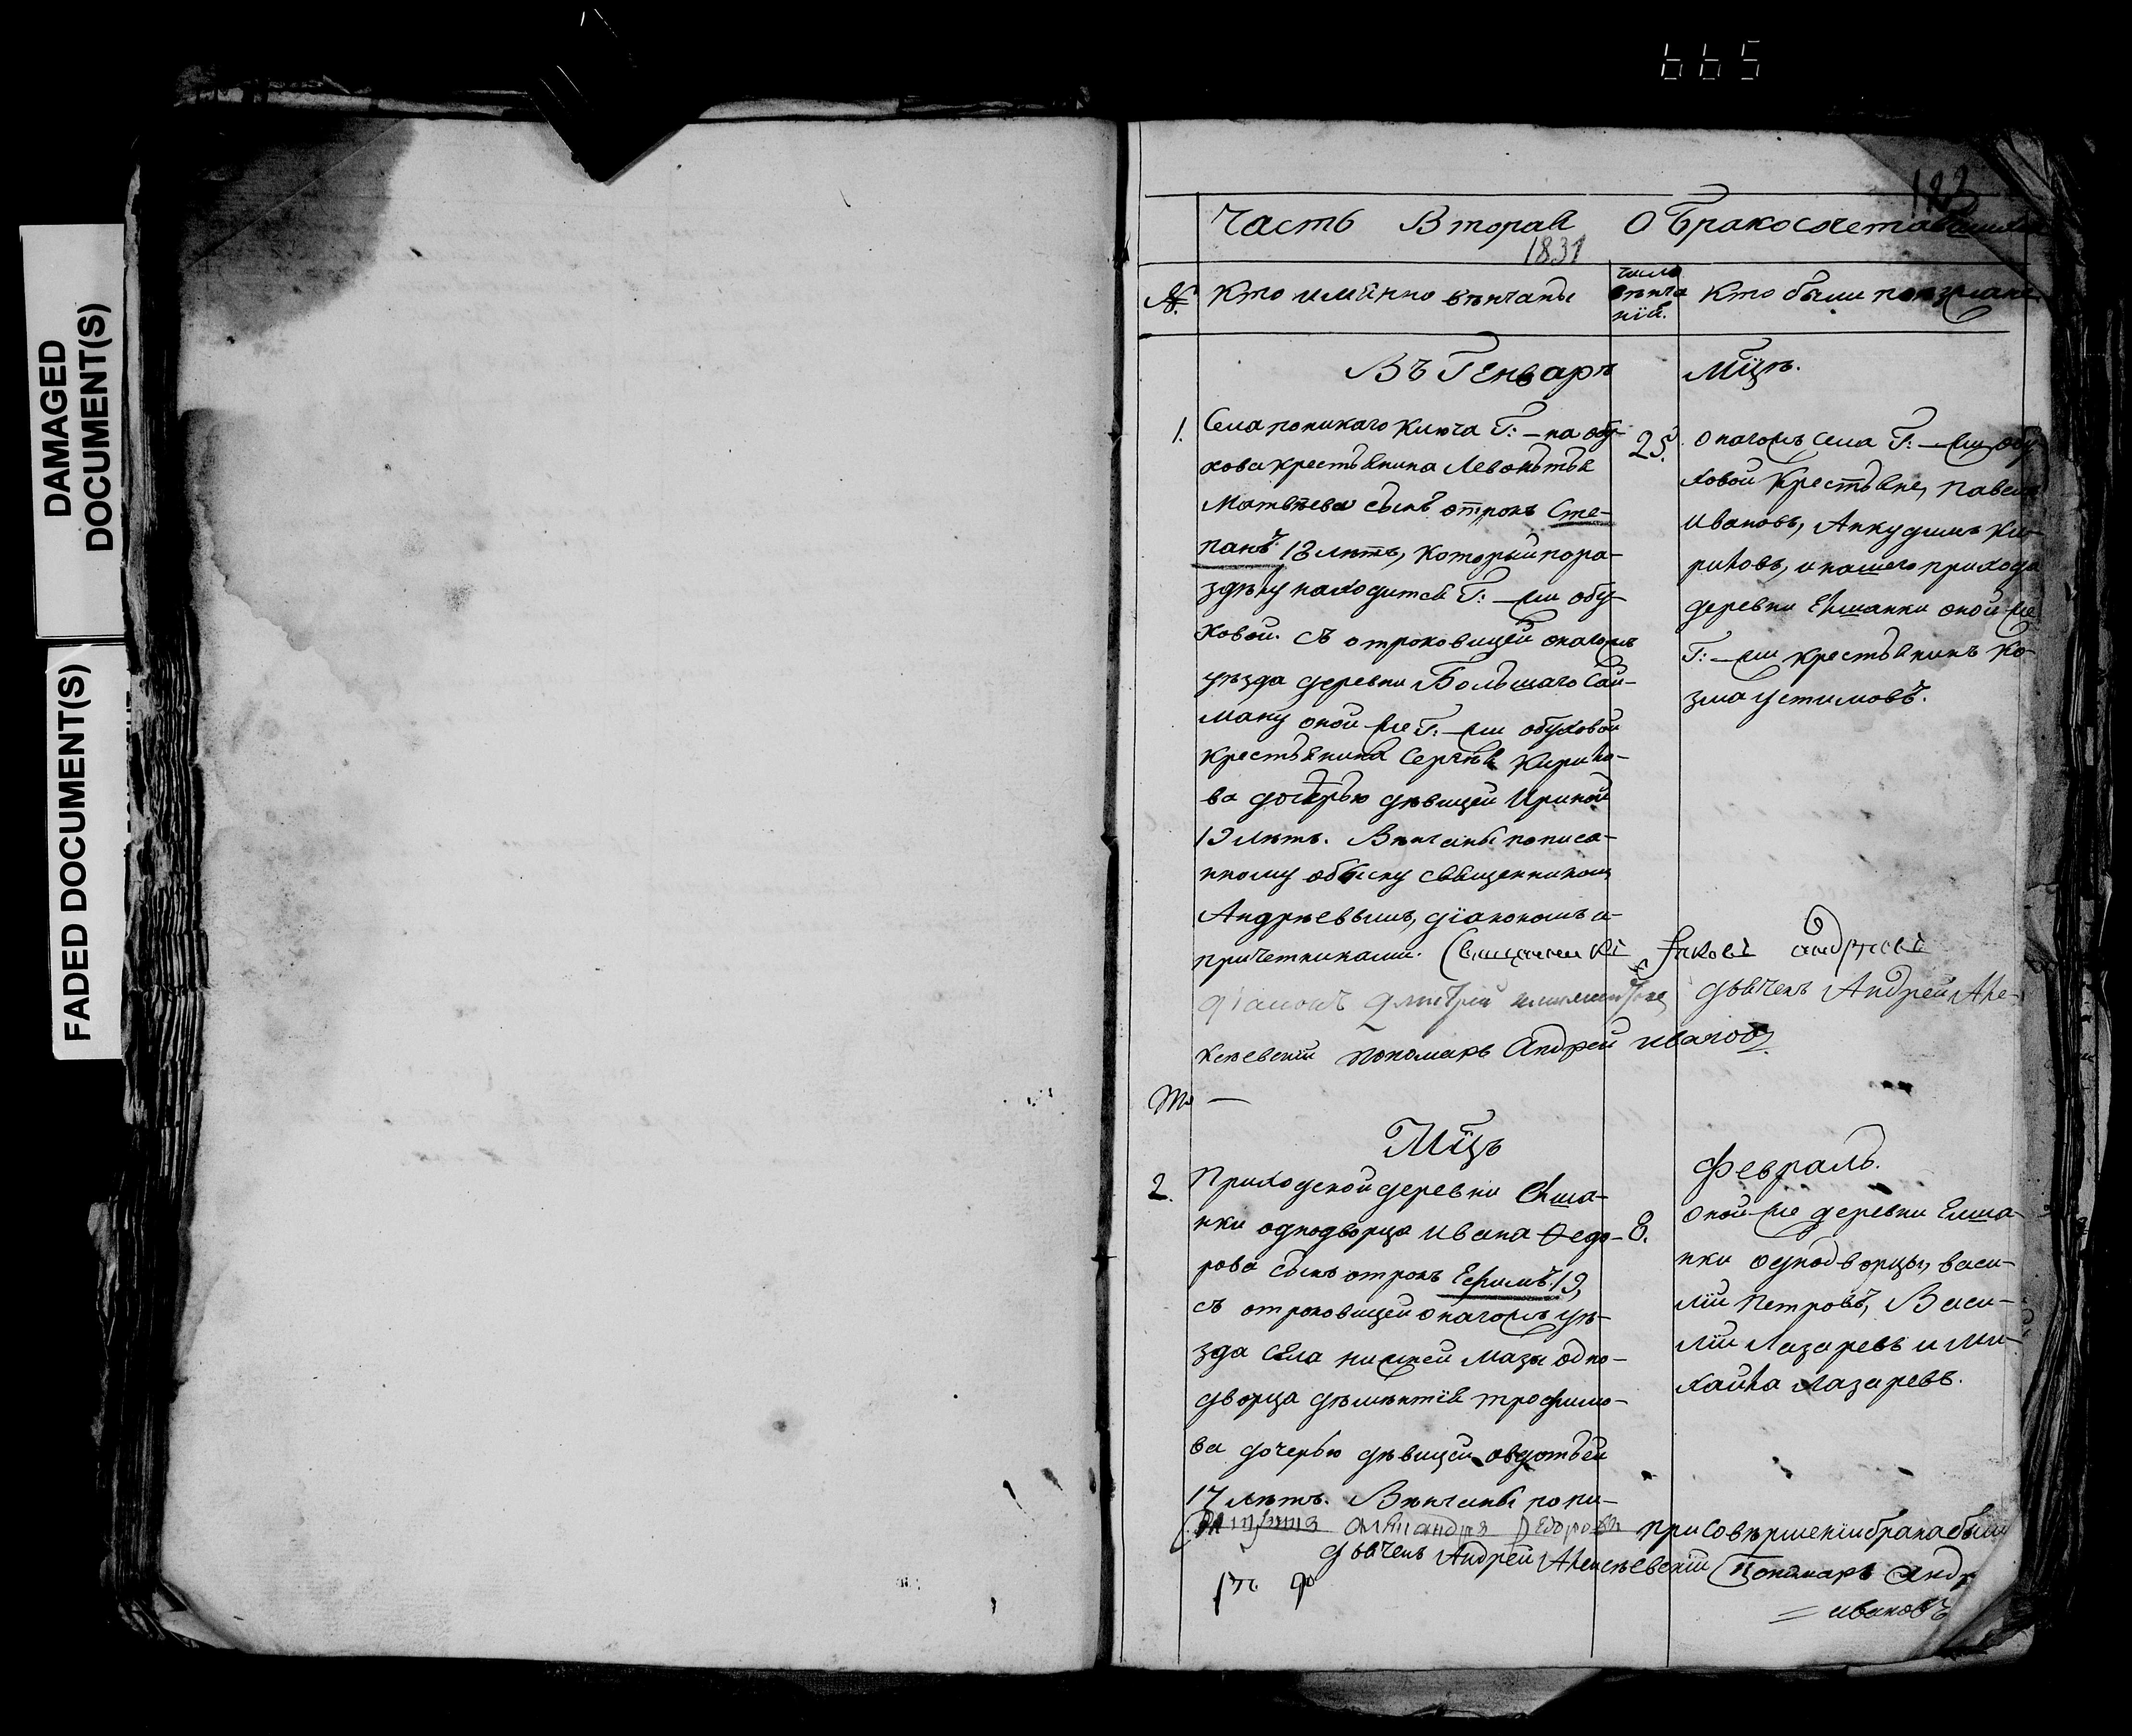 665
DAMAGED
DOCUMENT(S)
FADED DOCUMENT(S)
123
Часть Вторая О Бракосочетавшихся
1831
№ Кто имянно венчаны
число
венча
нїй.
Кто были поезжане
Въ Генваре Мцѣ.
1. Села поникаго Ключа Г:-на обу-
хова крестьянина Левонтья
Матвѣева сынъ отрокъ Сте-
панъ 18 лѣтъ, который по ра-
здѣлу находится Г:-жи обу-
ховой. съ отроковицей онагожъ
уѣзда деревни Большаго Сай-
ману оной же Г:-жи обуховой
крестьянина Сергѣя Кирило-
ва дочерью дѣвицей Ириной
19 лѣтъ. Венчаны по писа-
нному обыску священникомъ
Андрѣевымъ, дїакономъ и
причетниками. Священникъ Яковъ Андреевъ
дїаконъ Дмитрїй
дьячекъ Андрей Але-
ксѣевскїй пономарь Андрей Ивановъ
25.
онагожъ села Г:-жи обу-
ховой Крестьяне, Павелъ
Ивановъ, Анкудимъ Ки-
риловъ, и нашего прихода
деревни Елшанки оной же
Г:-жи крестьянинъ Ко-
зма Устимовъ.
Мцъ Февраль.
2. Приходской деревни Елша-
нки однодворца Ивана Ѳедо-
рова сынъ отрокъ Ефимъ 19,
съ отроковицей онагожъ уѣ-
зда села нижней Мазы одно-
дворца Дѣмѣнтїя Трофимо-
ва дочерью дѣвицей овдотьей
17 лѣтъ. Венчаны по пи-
8.
оной же деревни Елша-
нки однодворцы, Васи-
лїй Петровъ, Васи-
лїй Лазаревъ и Ми-
хайла Лазаревъ.
при совершенїи брака были
дьячекъ Андрей Алексѣевскїй Пономарь Андр
= Ивановъ